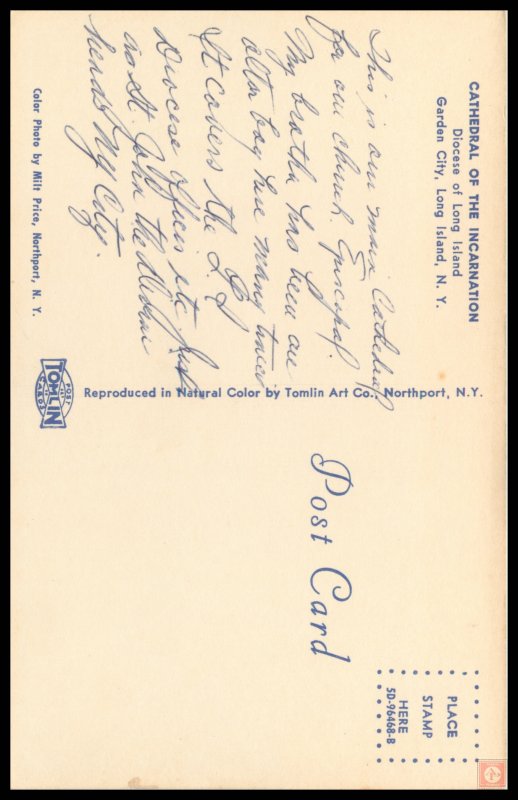 CATHEDRAL OF THE INCARNATION
Diocese of Long Island
Garden City, Long Island, N. Y.
This is our main Cathedral
for our Church. Episcopal.
My brother has been an
altar boy here many times
It covers the L. I.
Diocese offices etc. Just
as St. John the Divine
heads N Y City.
Color Photo by Milt Price, Northport, N. Y.
POST
TOMLIN
CARDS
Reproduced in Natural Color by Tomlin Art Co., Northport, N.Y.
Post Card
PLACE
STAMP
HERE
5D-96468-B